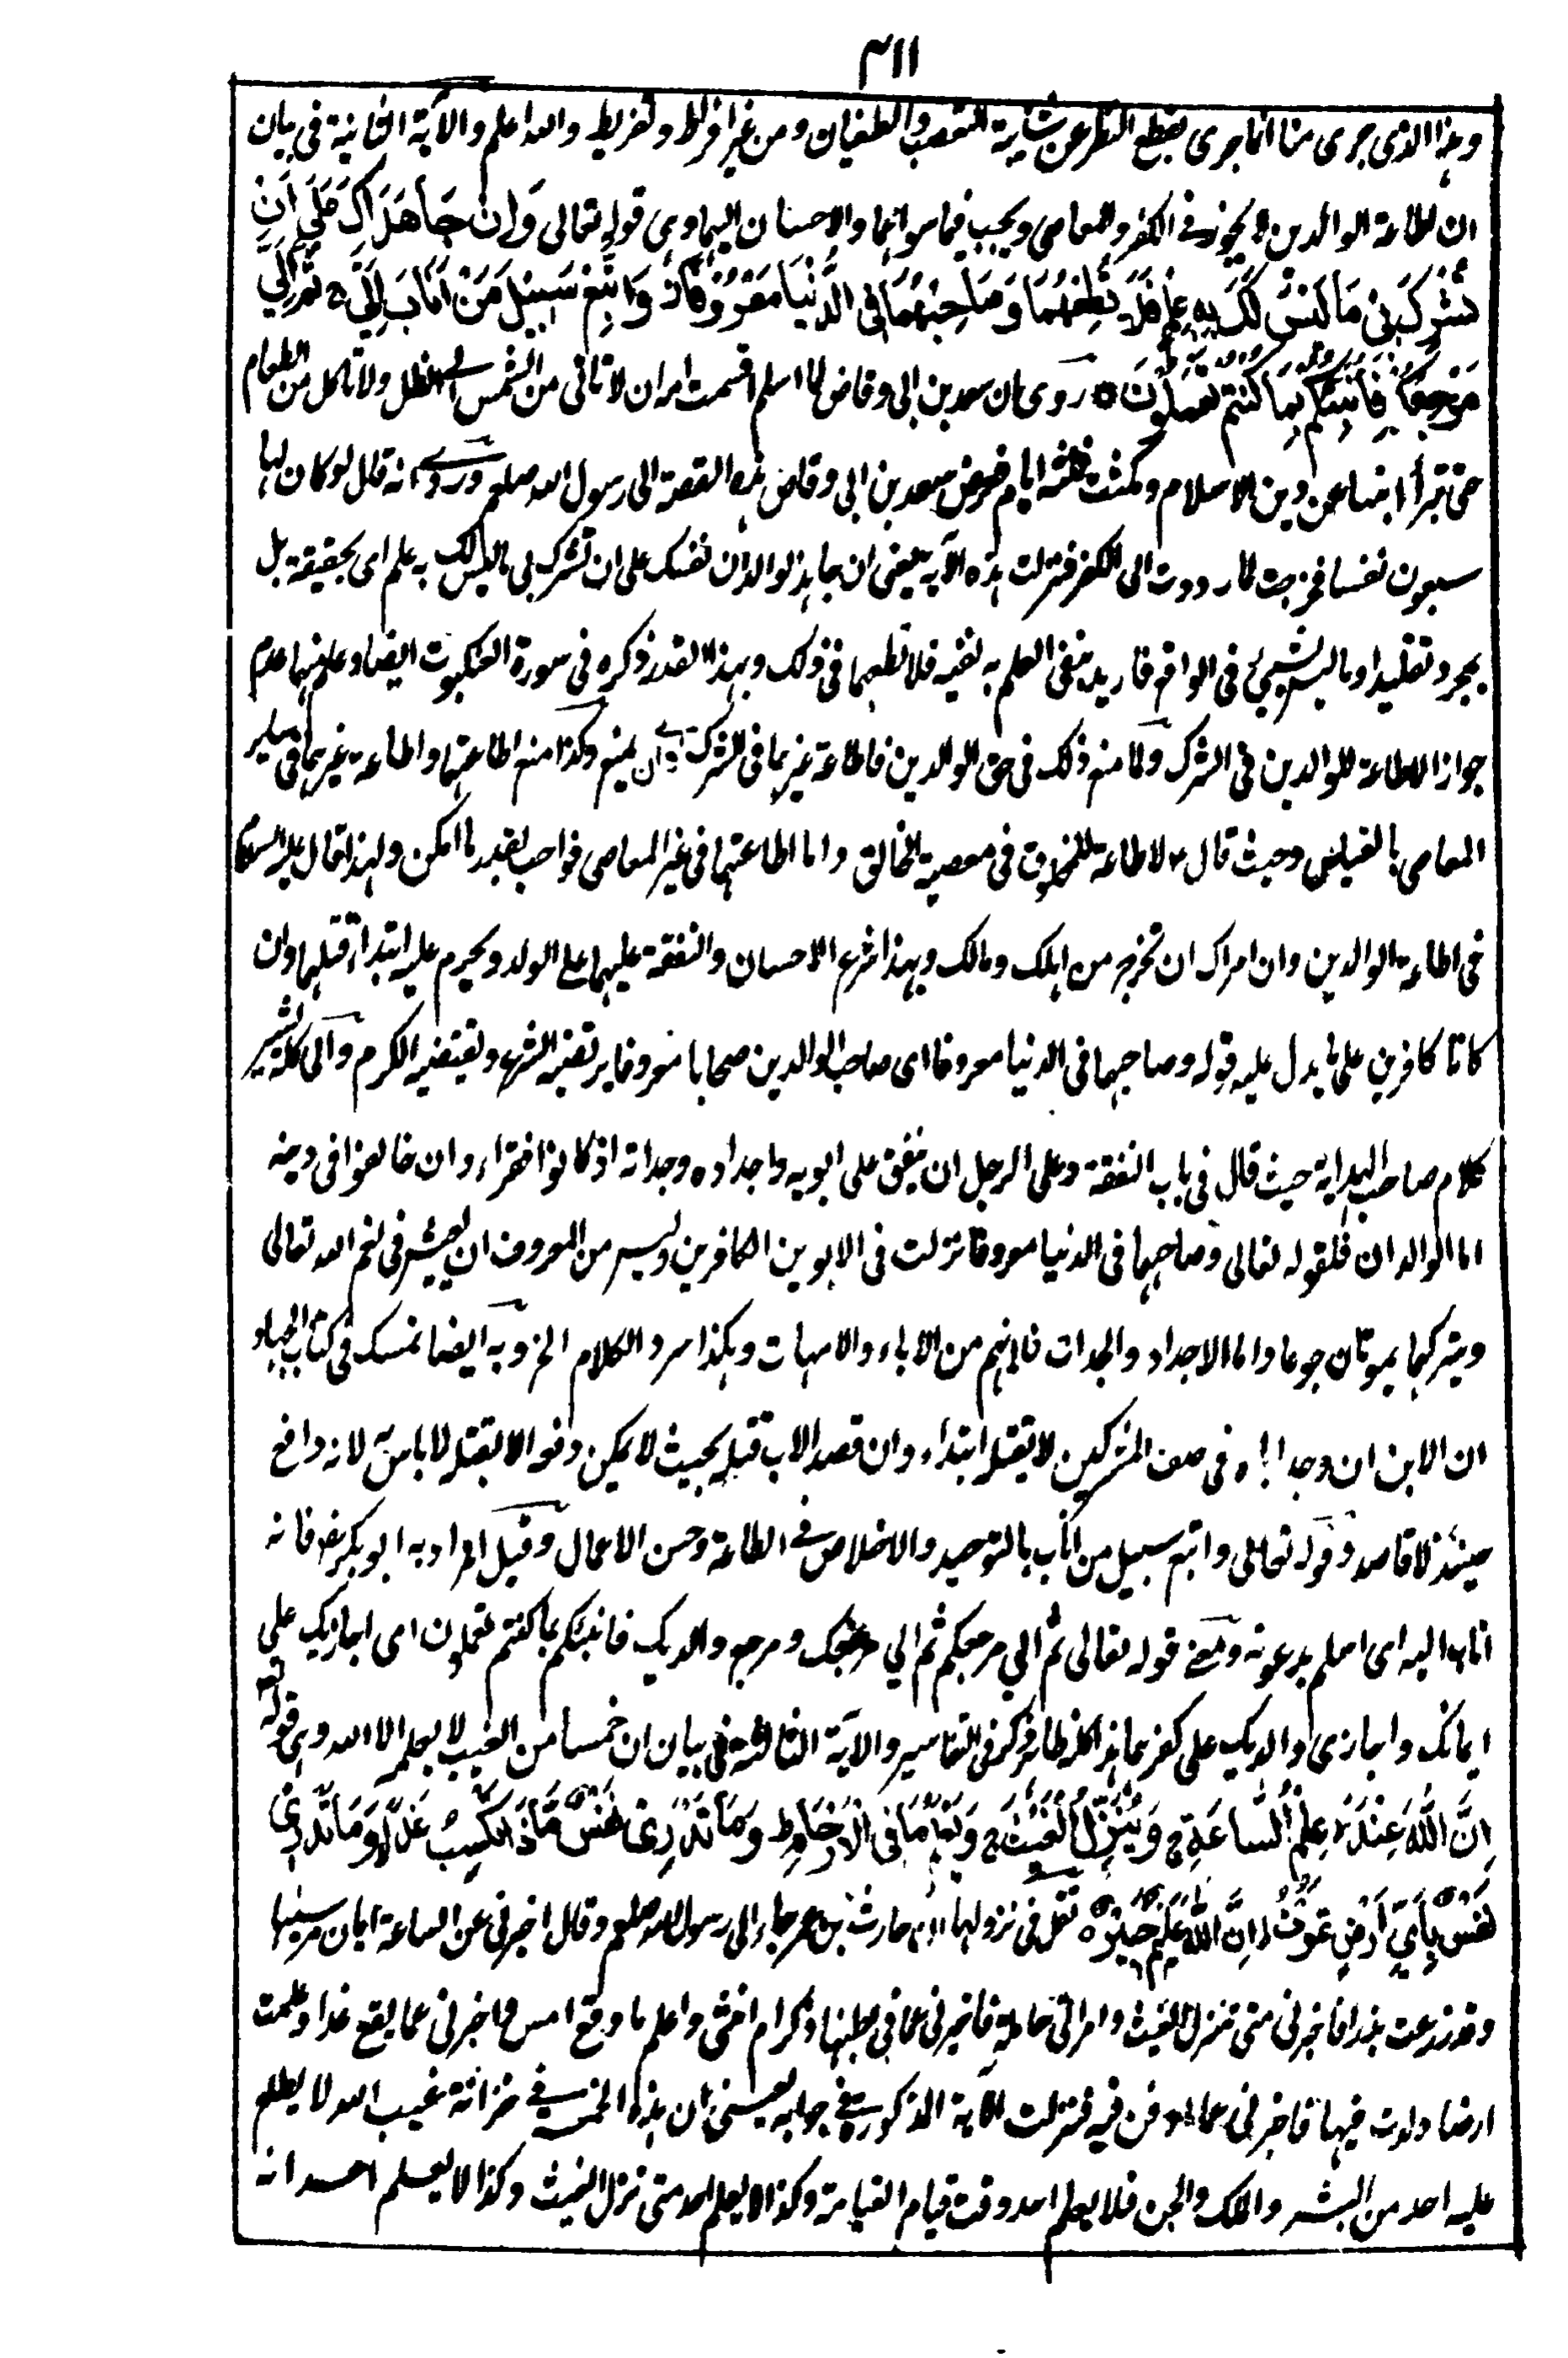 ٤١١
وهذا الذي جرى منا انما جرى بقطع النظر عن شائبة التعصب والطغيان ومن غير افراط وتفريط والله اعلم والآية الثانية في بيان
ان اطاعة الوالدين لا يجوز في الكفر والمعاصي ويجب فيما سواهما والاحسان اليهما وهي قوله تعالى وَاِنْ جَاهَدٰكَ عَلٰٓى اَنْ
تُشْرِكَ بِىْ مَا لَيْسَ لَكَ بِهٖ عِلْمٌ فَلَا تُطِعْهُمَا وَصَاحِبْهُمَا فِى الدُّنْيَا مَعْرُوْفًا وَاتَّبِعْ سَبِيْلَ مَنْ اَنَابَ اِلَىَّ ثُمَّ اِلَىَّ
مَرْجِعُكُمْ فَاُنَبِّئُكُمْ بِمَا كُنْتُمْ تَعْمَلُوْنَ روى ان سعد بن ابي وقاص لما اسلم اقسمت امه ان لا تاتي من الشمس الى الظل ولا تاكل من الطعام
حتى تبرأ ابنها عن دين الاسلام ومكثت ثلثة ايام فعرض سعد بن ابي وقاص هذه القصة الى رسول الله صلعم وروي انه قال لو كان لها
سبعون نفسا فخرجت لما رددت الى الكفر فنزلت هذه الآية يعني ان جاهد الوالدان نفسك على ان تشرك بي ما ليس لك به علم اي بحقيقته بل
بمجرد تقليد او ما ليس بشيء في الواقع فاريد بنفي العلم به نفيه فلا تطعهما في ذلك وبهذا القدر ذكره في سورة العنكبوت ايضا وعلم منهما عدم
جواز الاطاعة للوالدين في الشرك ولما منع ذلك في حق الوالدين فاطاعة غيرهما في الشرك اولى ان يمنع وكذا منع اطاعتهما واطاعة غيرهما في سائر
المعاصي بالقياس وحيث قال ع لا طاعة للمخلوق في معصية الخالق واما اطاعتهما في غير المعاصي فواجب بقدر ما امكن ولهذا قال عليه السلام
في اطاعة الوالدين وان امراك ان تخرج من اهلك ومالك وبهذا شرع الاحسان والنفقة عليهما على الولد ويحرم عليه ابتداء قتلهما وان
كانا كافرين على ما يدل عليه قوله وصاحبهما في الدنيا معروفا اي صاحب الوالدين صحابا معروفا يرتضيه الشرع ويقتضيه الكرم والى كله يشير
كلام صاحب الهداية حيث قال في باب النفقة وعلى الرجل ان ينفق على ابويه واجداده وجداته اذ كانوا فقراء وان خالفوا في دينه
اما الوالدان فلقوله تعالى وصاحبهما في الدنيا معروفا نزلت في الابوين الكافرين وليس من المعروف ان يعيش في نعم الله تعالى
ويتركهما يموتان جوعا واما الاجداد والجدات فلانهم من الآباء والامهات وهكذا سرد الكلام الخ وبه ايضا تمسك في كتاب الجهاد
ان الابن ان وجد اباه في صف المشركين لا يقتله ابتداء وان قصد الاب قتله بحيث لا يمكن دفعه الا بقتله لا باس به لانه دافع
حينئذ لا قاصد وقوله تعالى واتبع سبيل من اناب بالتوحيد والاخلاص في الطاعة وحسن الاعمال وقيل المراد به ابو بكر رضـ فانه
اناب اليه اي اسلم بدعوته ومعنى قوله تعالى ثم الي مرجعكم ثم الي مرجعك ومرجع والديك فانبئكم بما كنتم تعملون اي اجازيك على
ايمانك واجازي والديك على كفرهما هذا كله مما ذكر في التفاسير والآية الثالثة في بيان ان خمسا من الغيب لا يعلمه الا الله وهي قوله تع
اِنَّ اللّٰهَ عِنْدَهٗ عِلْمُ السَّاعَةِ ج وَيُنَزِّلُ الْغَيْثَ ج وَيَعْلَمُ مَا فِى الْاَرْحَامِ ط وَمَا تَدْرِىْ نَفْسٌ مَّاذَا تَكْسِبُ غَدًا وَمَا تَدْرِىْ
نَفْسٌ بِاَىِّ اَرْضٍ تَمُوْتُ اِنَّ اللّٰهَ عَلِيْمٌ خَبِيْرٌ نقل في نزولها ان حارث بن عمر جاء الى رسول الله صلعم وقال اخبرني عن الساعة ايان مرسيها
وقد زرعت بذرا فاخبرني متى تنزل الغيث وامراتي حاملة فاخبرني عما في بطنها اذكر ام انثى واعلم ما وقع امس فاخبرني عما يقع غدا وعلمت
ارضا ولدت فيها فاخبرني عما ادفن فيه فنزلت الآية المذكورة في جوابه يعني ان هذه الخمس في خزانة غيب الله لا يطلع
عليه احد من البشر والملك والجن فلا يعلم احد وقت قيام القيامة وكذا لا يعلم احد متى نزل الغيث وكذا لا يعلم احد انه